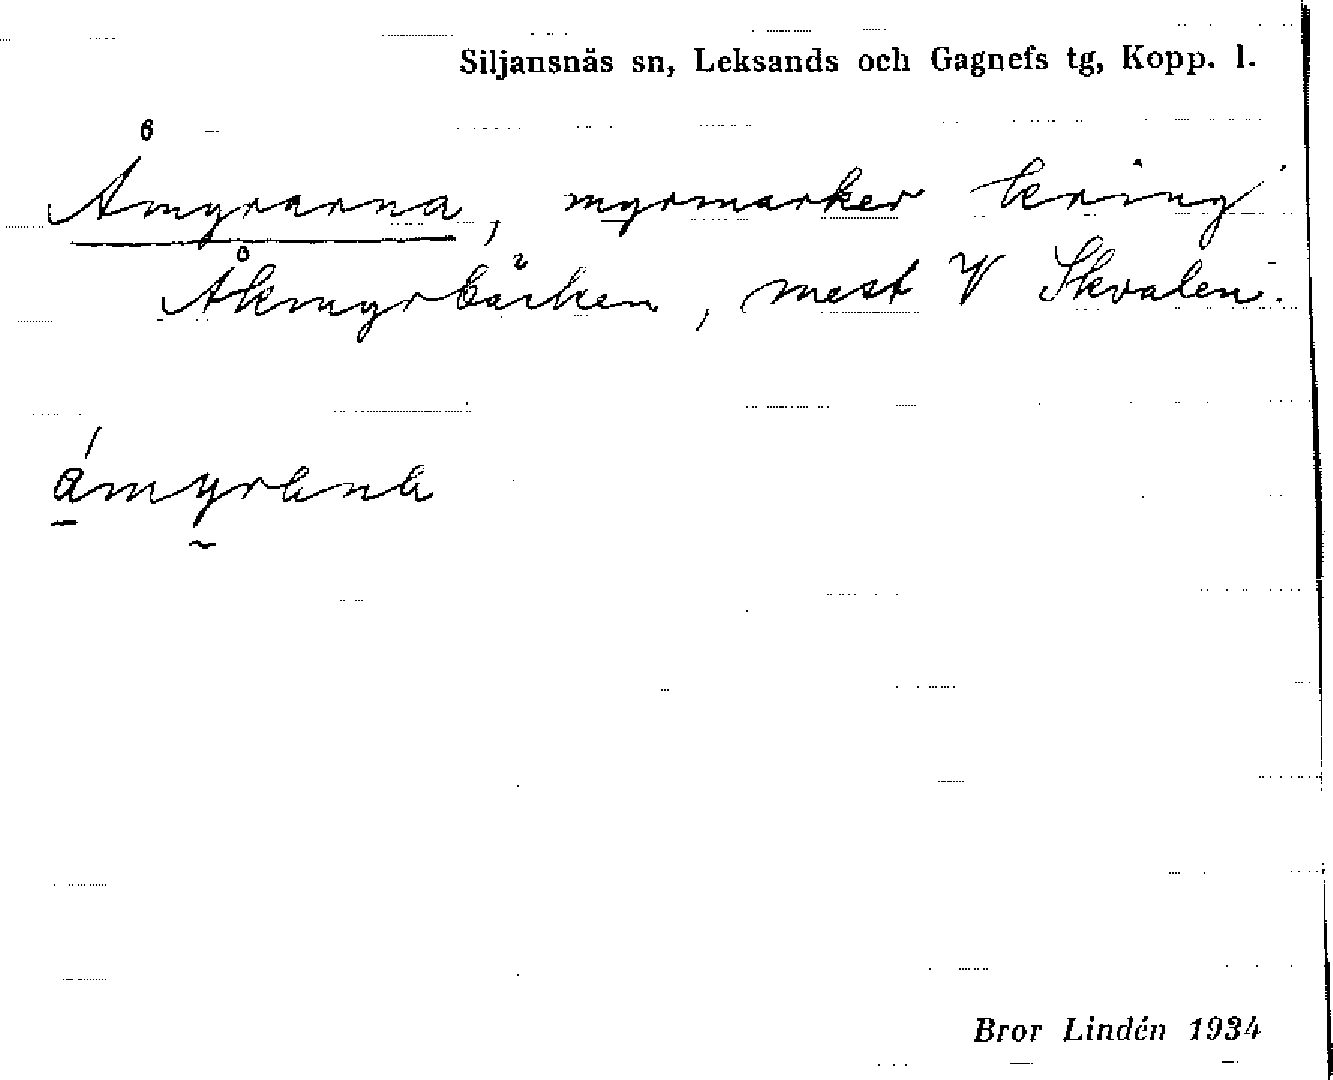 Siljansnäs sn, Leksands och Gagnefs tg, Kopp. l.
Åmyrarna, myrmarker kring
Åkmyrbäcken, mest V Skvalen.
Bror Lindén 1934